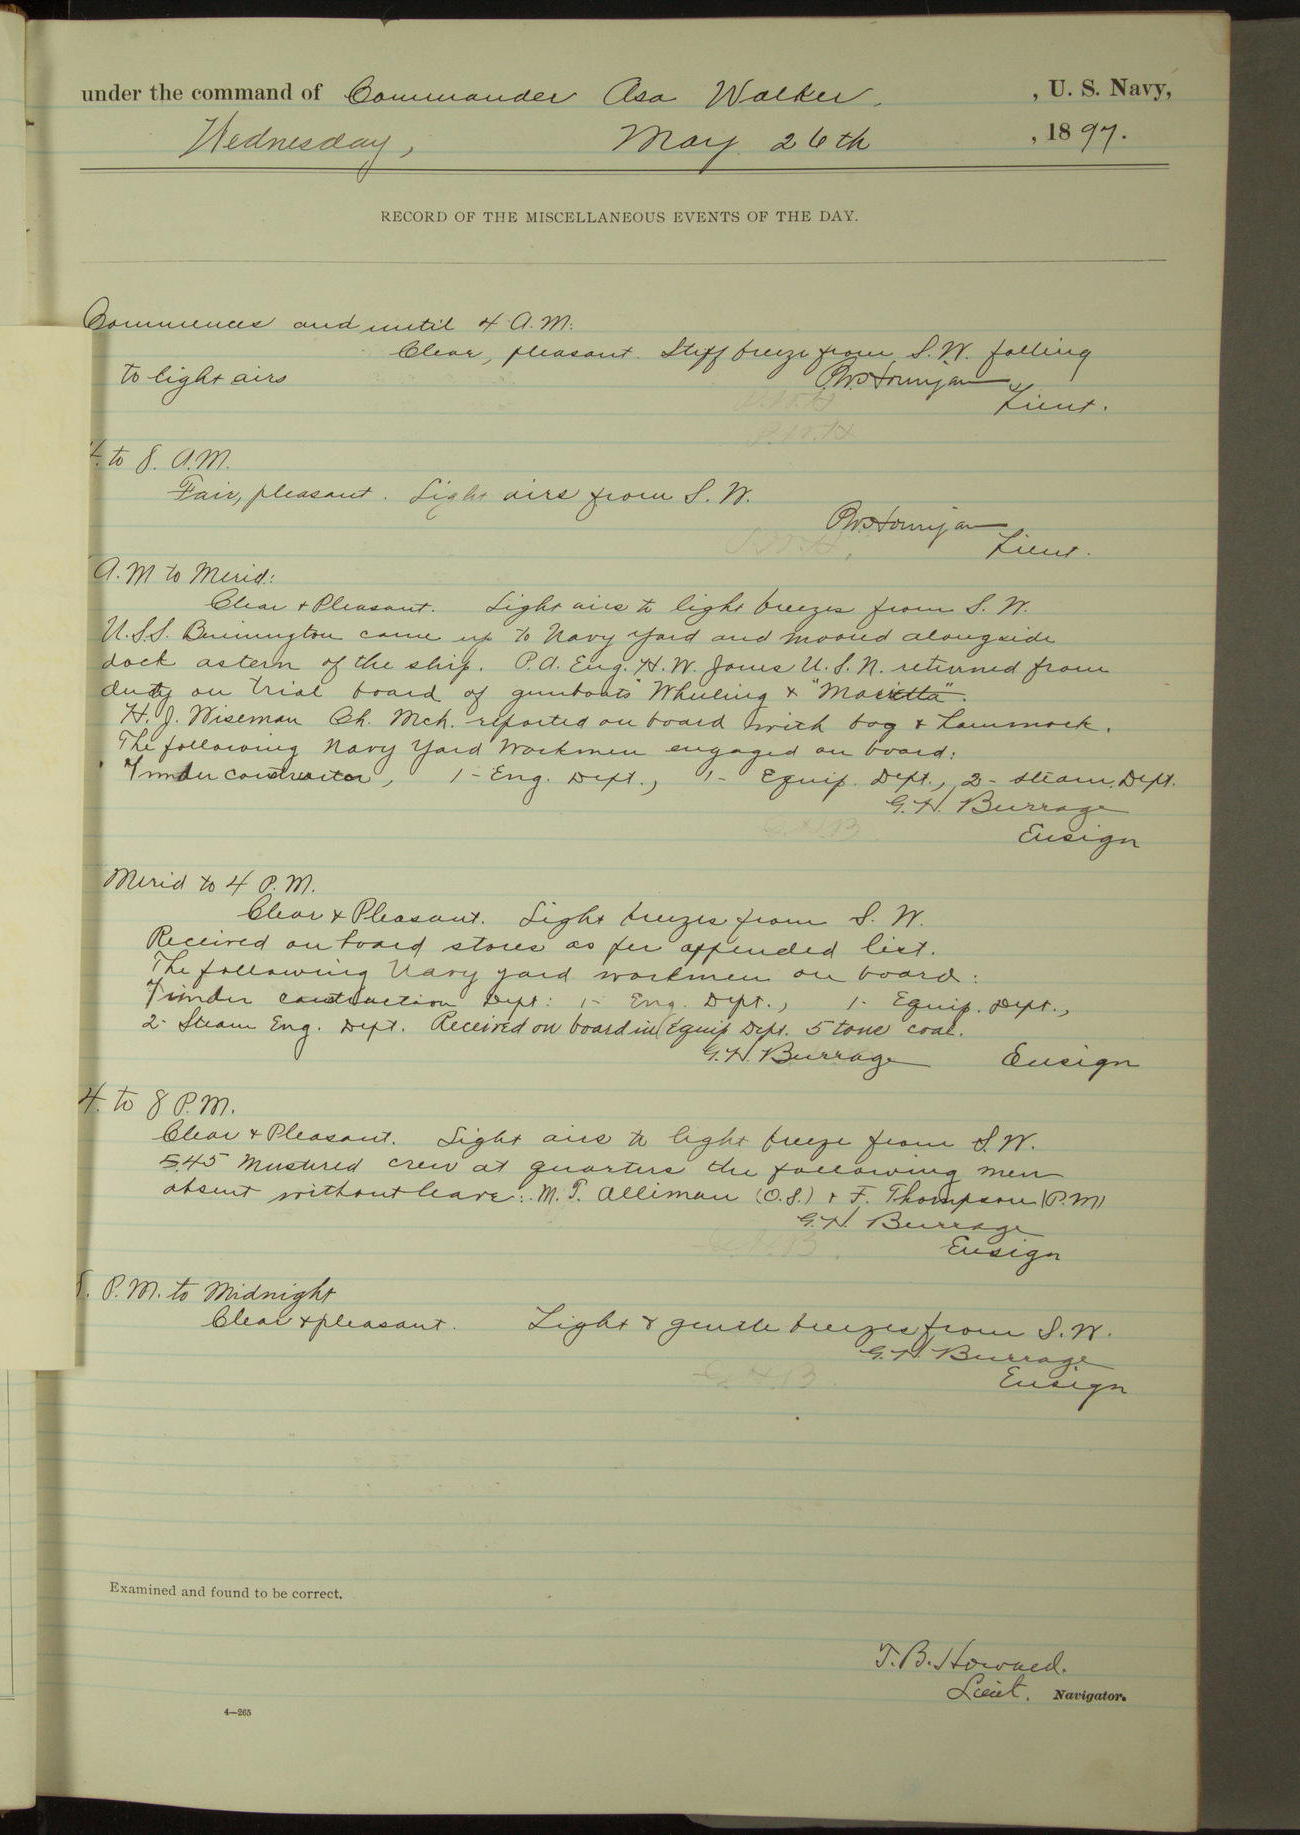 under the command of Commander Asa Walker, , U. S. Navy,
Wednesday, May 26th , 1897.
RECORD OF THE MISCELLANEOUS EVENTS OF THE DAY.
Commences and until 4 A.M.
Clear, pleasant. Stiff breeze from S.W. falling
to light airs
Lieut.
4. to 8. A.M.
Fair, pleasant. Light airs from S.W.
Lieut.
A.M to Merid:
Clear & Pleasant. Light airs to light breezes from S.W.
U.S.S. Bennington came up to Navy Yard and moored alongside
dock astern of the ship. P.A. Eng. H.W. Jones U.S.N. returned from
duty on trial board of gunboats "Wheeling & "Marietta".
H.J. Wiseman Ch. Mch. reported on board with bag & hammock.
The following Navy Yard Workmen engaged on board:
7 under constructor, 1- Eng. Dept., 1- Equip. Dept., 2- steam Dept.
G.H. Burrage
Ensign
Merid to 4 P.M.
Clear & Pleasant. Light breezes from S.W.
Received on board stores as per appended list.
The following Navy yard workmen on board:
7 under construction Dept: 1- Eng. Dept., 1- Equip. Dept.,
2- Steam Eng. Dept. Received on board in Equip Dept. 5 tons coal.
G.H. Burrage Ensign
4. to 8 P.M.
Clear & Pleasant. Light airs to light breeze from S.W.
5.45 Mustered crew at quarters the following men
absent without leave: M.T. Alliman (O.S.) & F. Thompson (P.M)
G.H. Burrage
Ensign
8. P.M. to Midnight
Clear & pleasant. Light & gentle breezes from S.W.
G.H Burrage
Ensign
Examined and found to be correct.
T.B. Howard.
Lieut. Navigator.
4—265